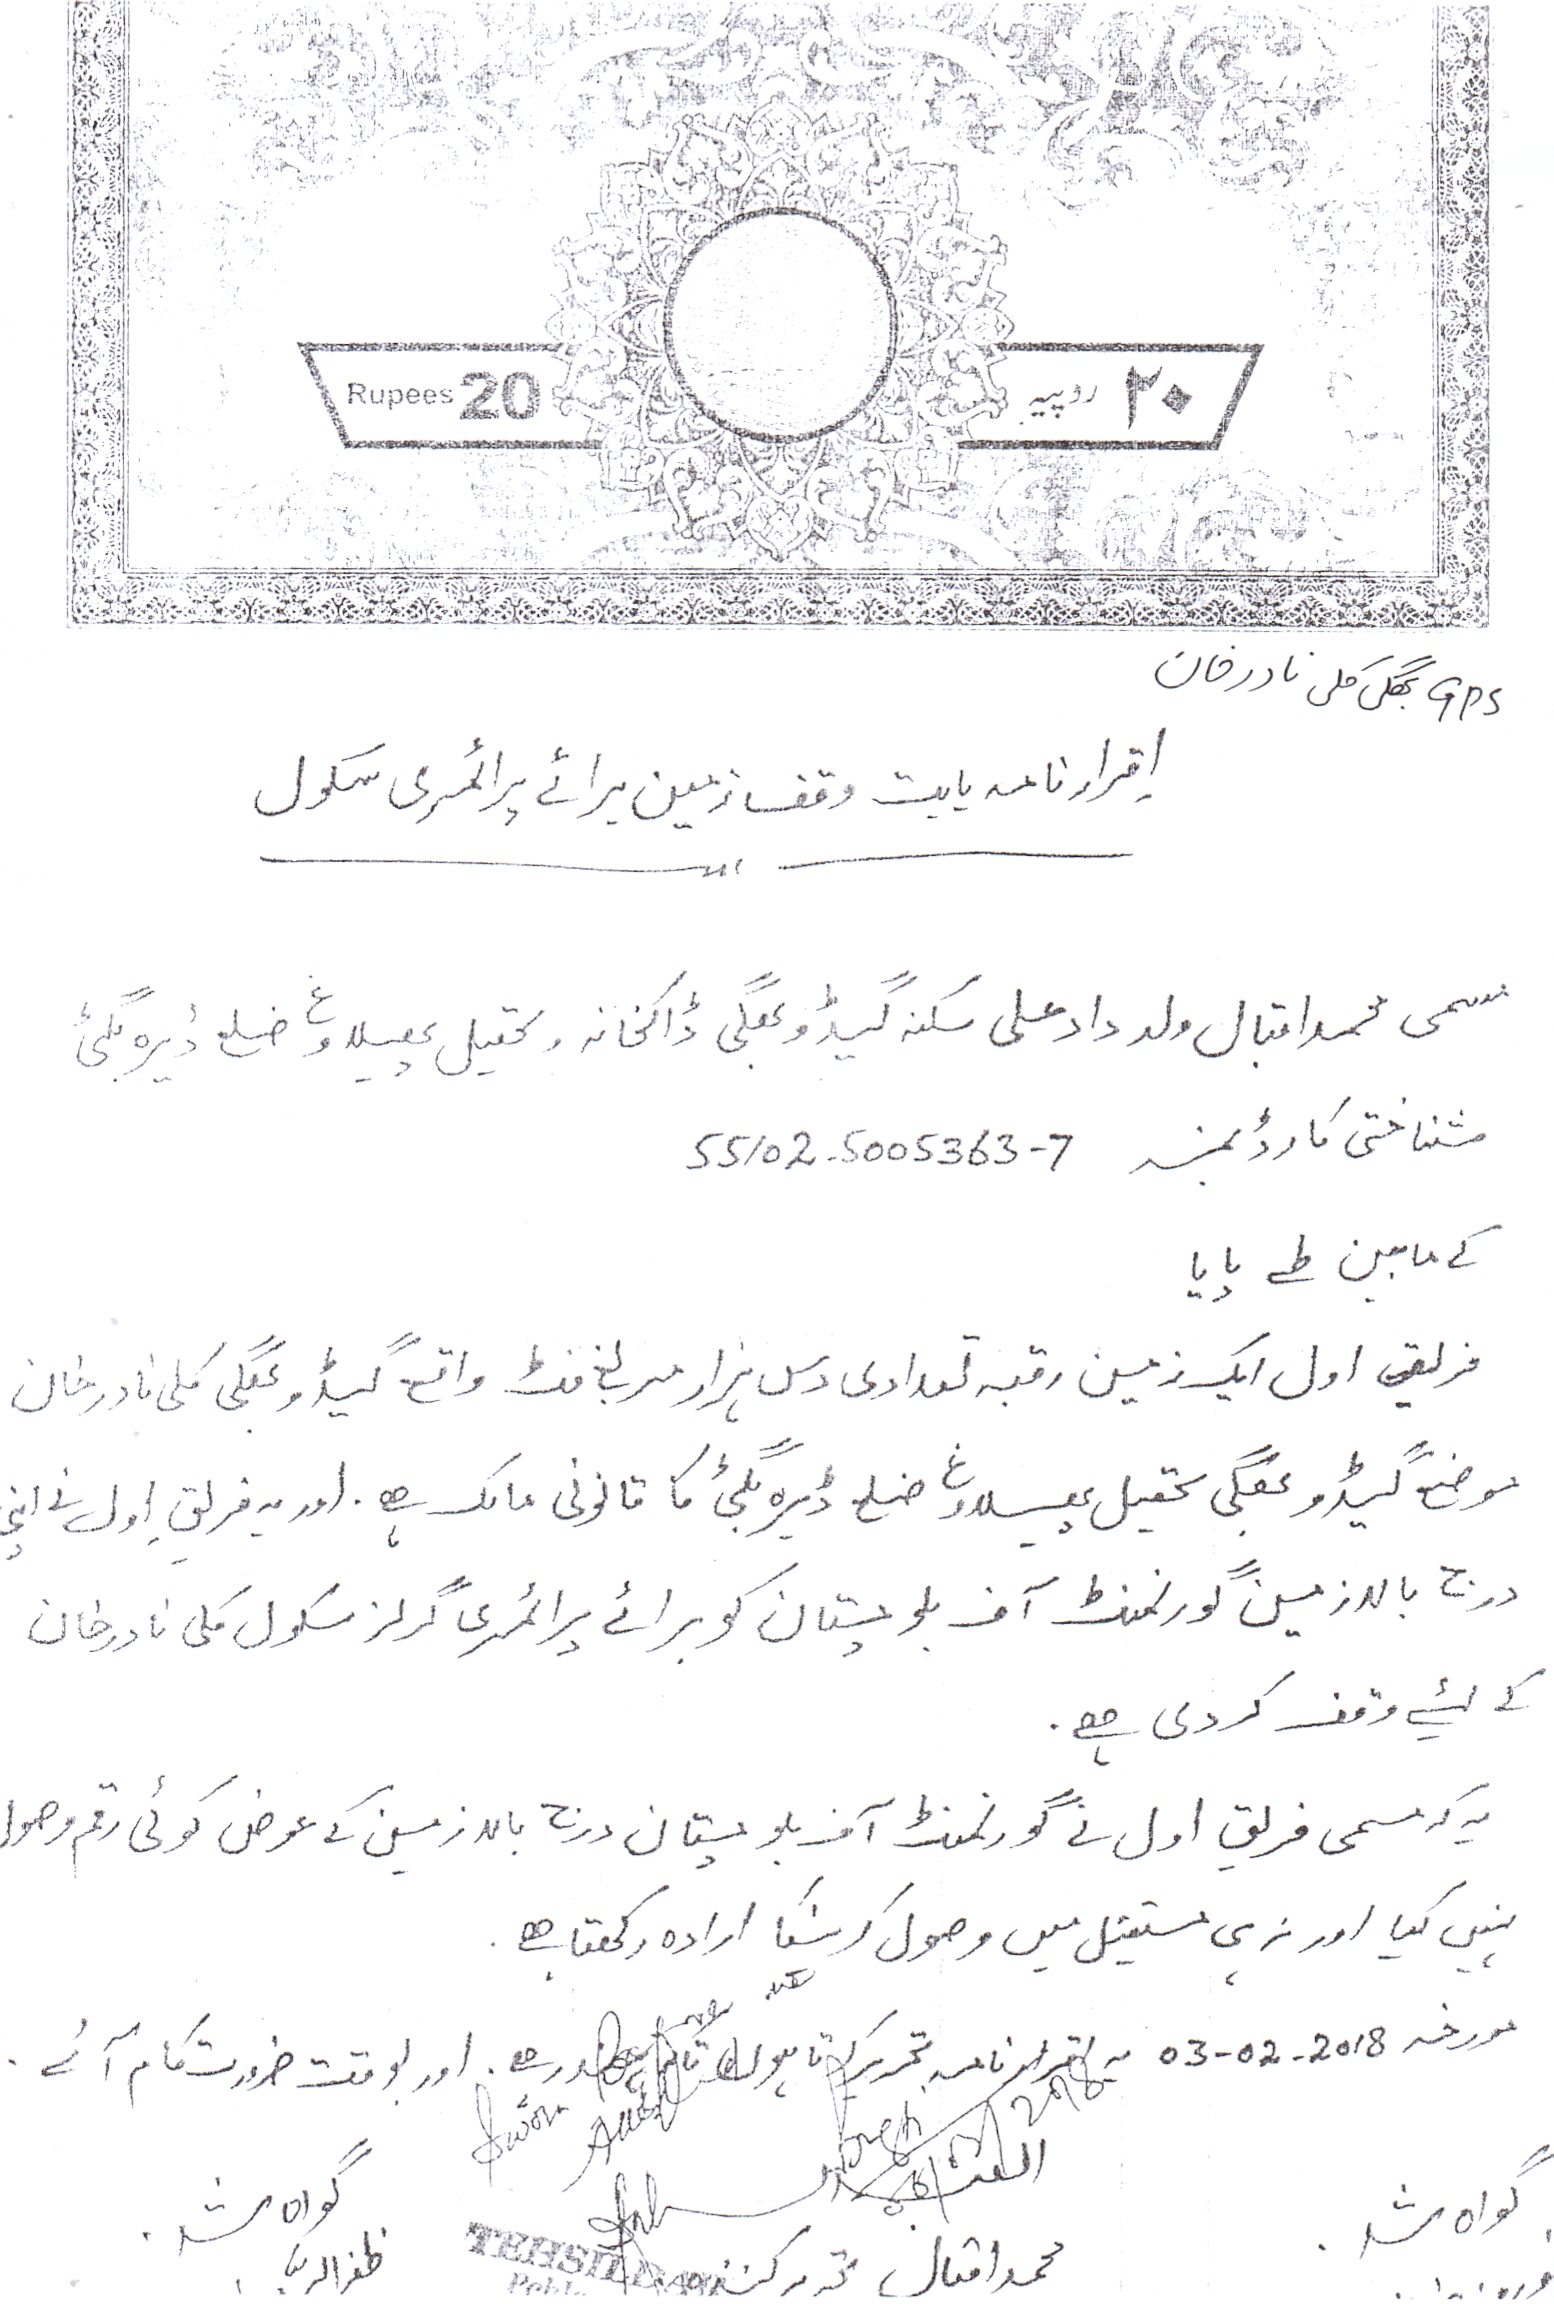 Rupees 20
۲۰ روپیہ
GPS بگٹی کلی نادر خان
اقرار نامہ بابت وقف زمین برائے پرائمری سکول
مسمی محمد اقبال ولد داد علی سکنہ گیڈو بگٹی ڈاکخانہ و تحصیل پیلاوغ ضلع ڈیرہ بگٹی
شناختی کارڈ نمبر 55102-5005363-7
کے مابین طے پایا
فریق اول ایک زمین رقبہ تعدادی دس ہزار مربع فٹ واقع گیڈو بگٹی کلی نادر خان
موضع گیڈو بگٹی تحصیل پیلاوغ ضلع ڈیرہ بگٹی کا قانونی مالک ہے۔ اور یہ فریق اول نے اپنی
درج بالا زمین گورنمنٹ آف بلوچستان کو برائے پرائمری گرلز سکول کلی نادر خان
کے لئیے وقف کر دی ہے۔
یہ کہ مسمی فریق اول نے گورنمنٹ آف بلوچستان درج بالا زمین کے عوض کوئی رقم وصول
نہیں کیا اور نہ ہی مستقبل میں وصول کرنیکا ارادہ رکھتا ہے۔
مورخہ 03-02-2018 یہ اقرار نامہ تحریر کرتا ہوں تاکہ سند رہے۔ اور بوقت ضرورت کام آئے۔
Sworn
2018
العبد
گواہ شد
گواہ شد
محمد اقبال
TEHSILDAR